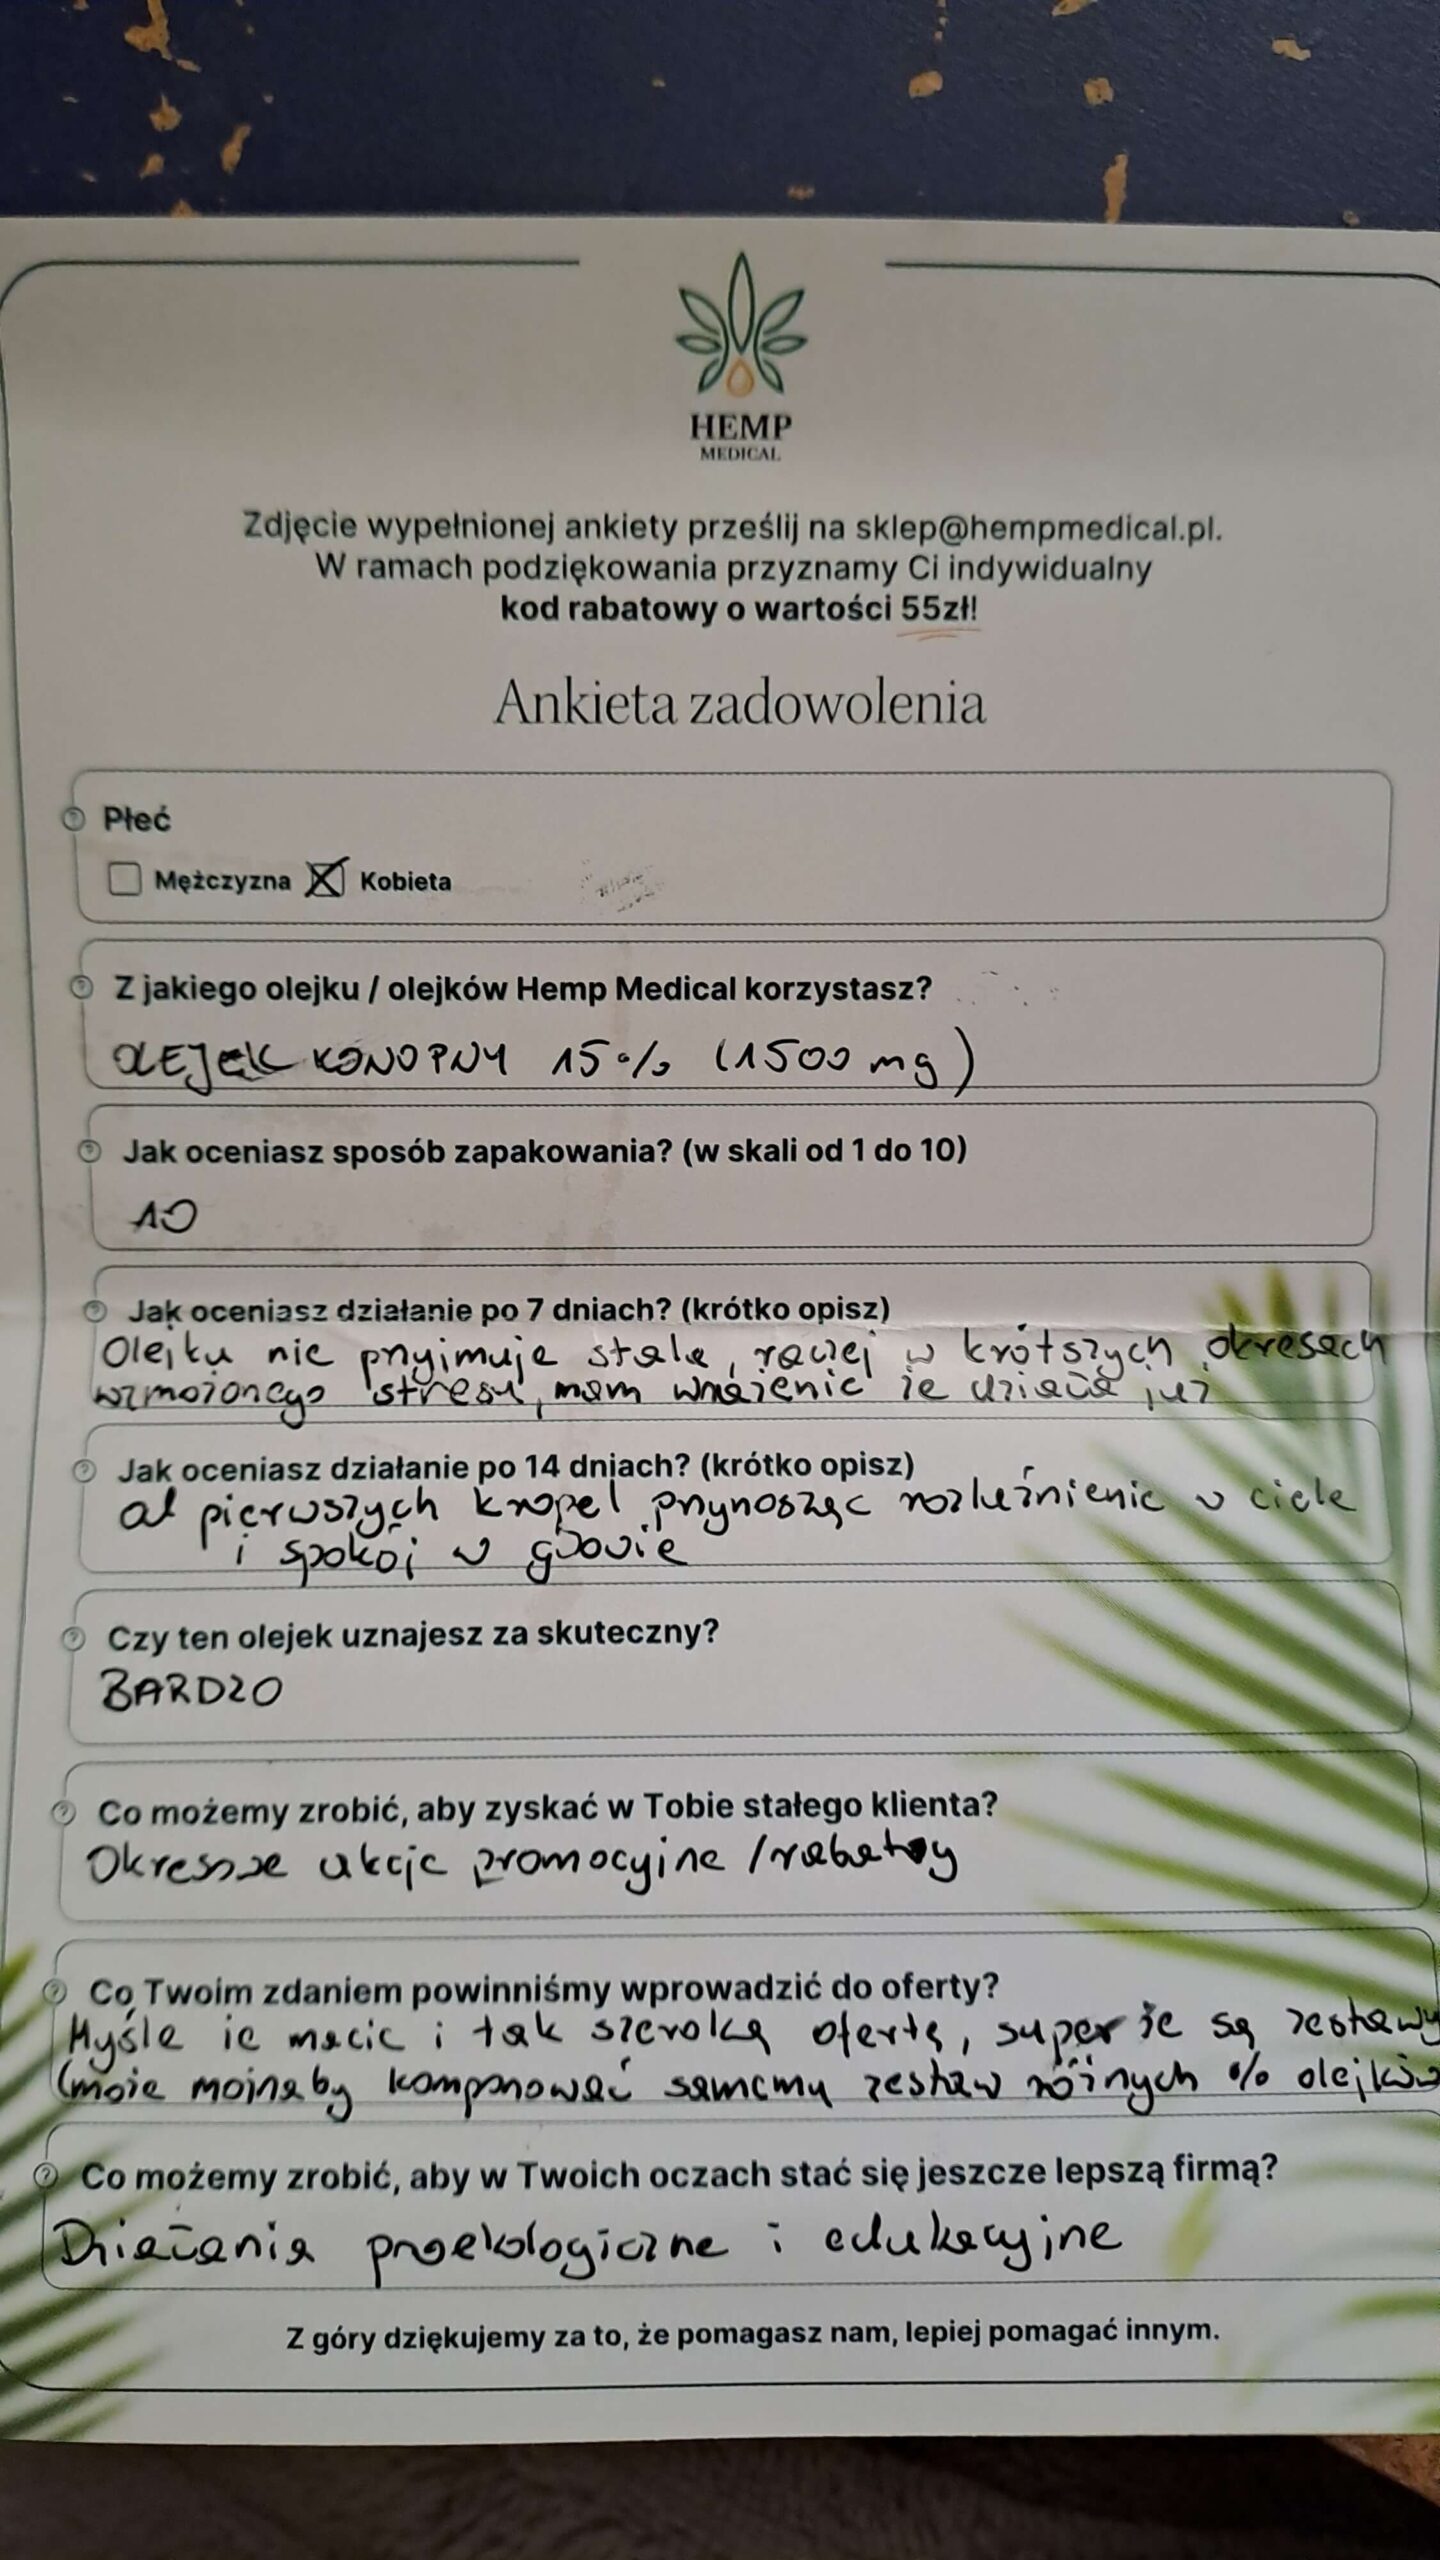 HEMP
MEDICAL
Zdjęcie wypełnionej ankiety prześlij na sklep@hempmedical.pl.
W ramach podziękowania przyznamy Ci indywidualny
kod rabatowy o wartości 55zł!
Ankieta zadowolenia
Płeć
Mężczyzna Kobieta
Z jakiego olejku / olejków Hemp Medical korzystasz?
OLEJEK KONOPNY 15% (1500 mg)
Jak oceniasz sposób zapakowania? (w skali od 1 do 10)
10
Jak oceniasz działanie po 7 dniach? (krótko opisz)
Olejku nie przyjmuje stale, raciej w krótszych okresach
wzmożonego stresu, mam wrażenie że działa już
Jak oceniasz działanie po 14 dniach? (krótko opisz)
od pierwszych kropel przynosząc rozluźnienie w ciele
i spokój w głowie
Czy ten olejek uznajesz za skuteczny?
BARDZO
Co możemy zrobić, aby zyskać w Tobie stałego klienta?
akcje promocyjne / rabaty
Co Twoim zdaniem powinniśmy wprowadzić do oferty?
Myślę że macie i tak szeroką ofertę, super że są zestawy
(może można by komponować samemu zestaw różnych % olejków
Co możemy zrobić, aby w Twoich oczach stać się jeszcze lepszą firmą?
Działania proekologiczne i edukacyjne
Z góry dziękujemy za to, że pomagasz nam, lepiej pomagać innym.